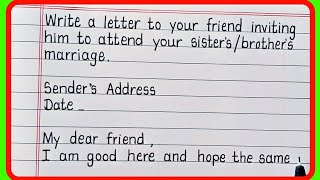 Write a letter to your friend inviting
him to attend your sister's/brother's
marriage.
Sender's Address
Date _
My dear friend,
I am good here and hope the same